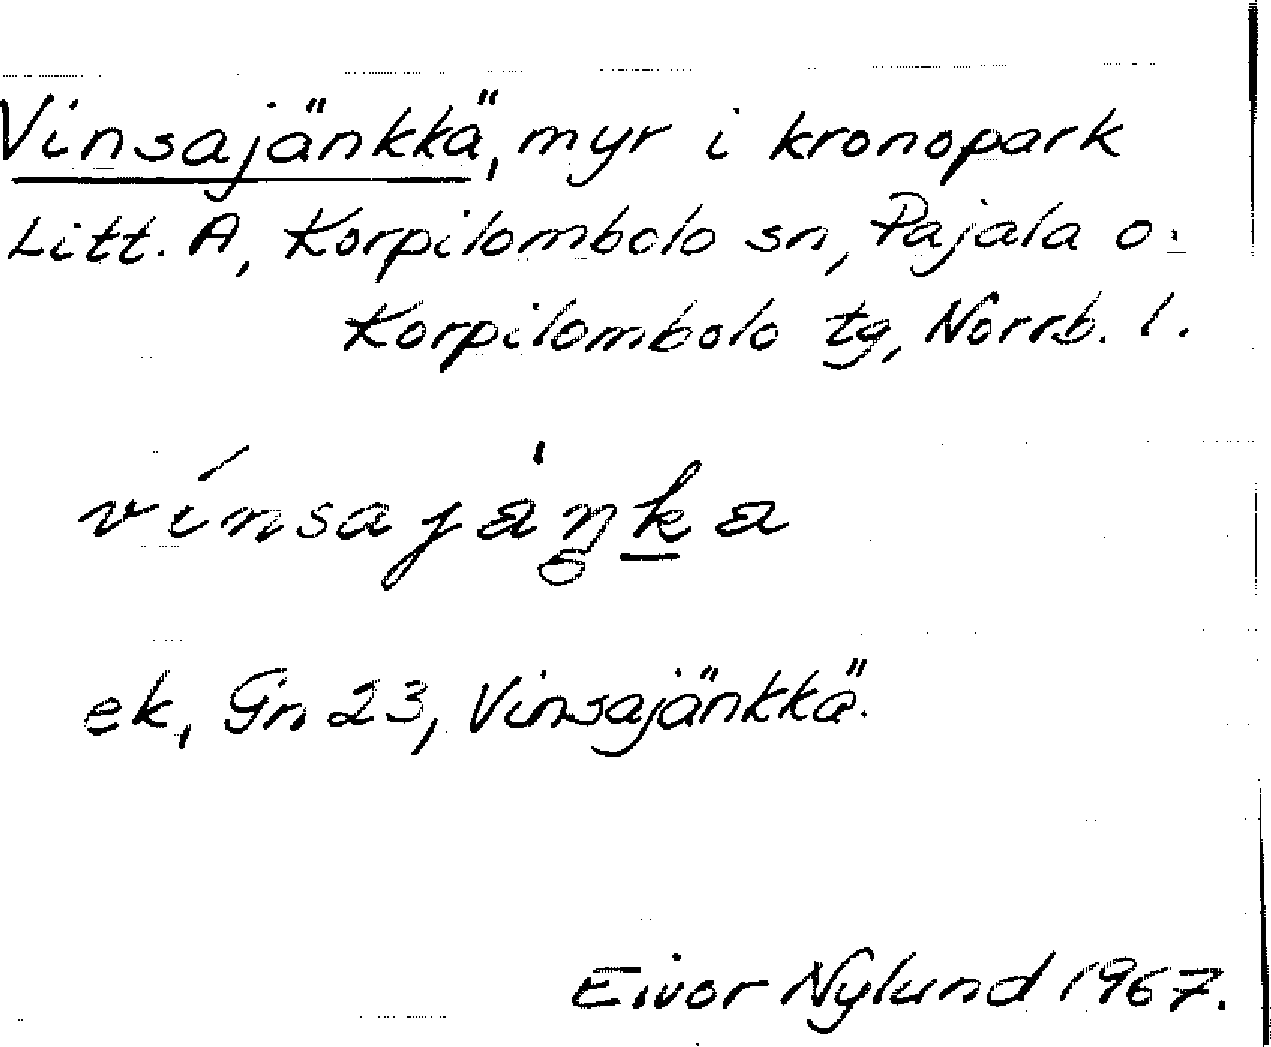 Vinsajänkkä, myr i kronopark
Litt. A, Korpilombolo sn, Pajala o.
Korpilombolo tg, Norrb. l.
vínsajàŋka
ek, Gn 23, Vinsajänkkä.
Eivor Nylund 1967.